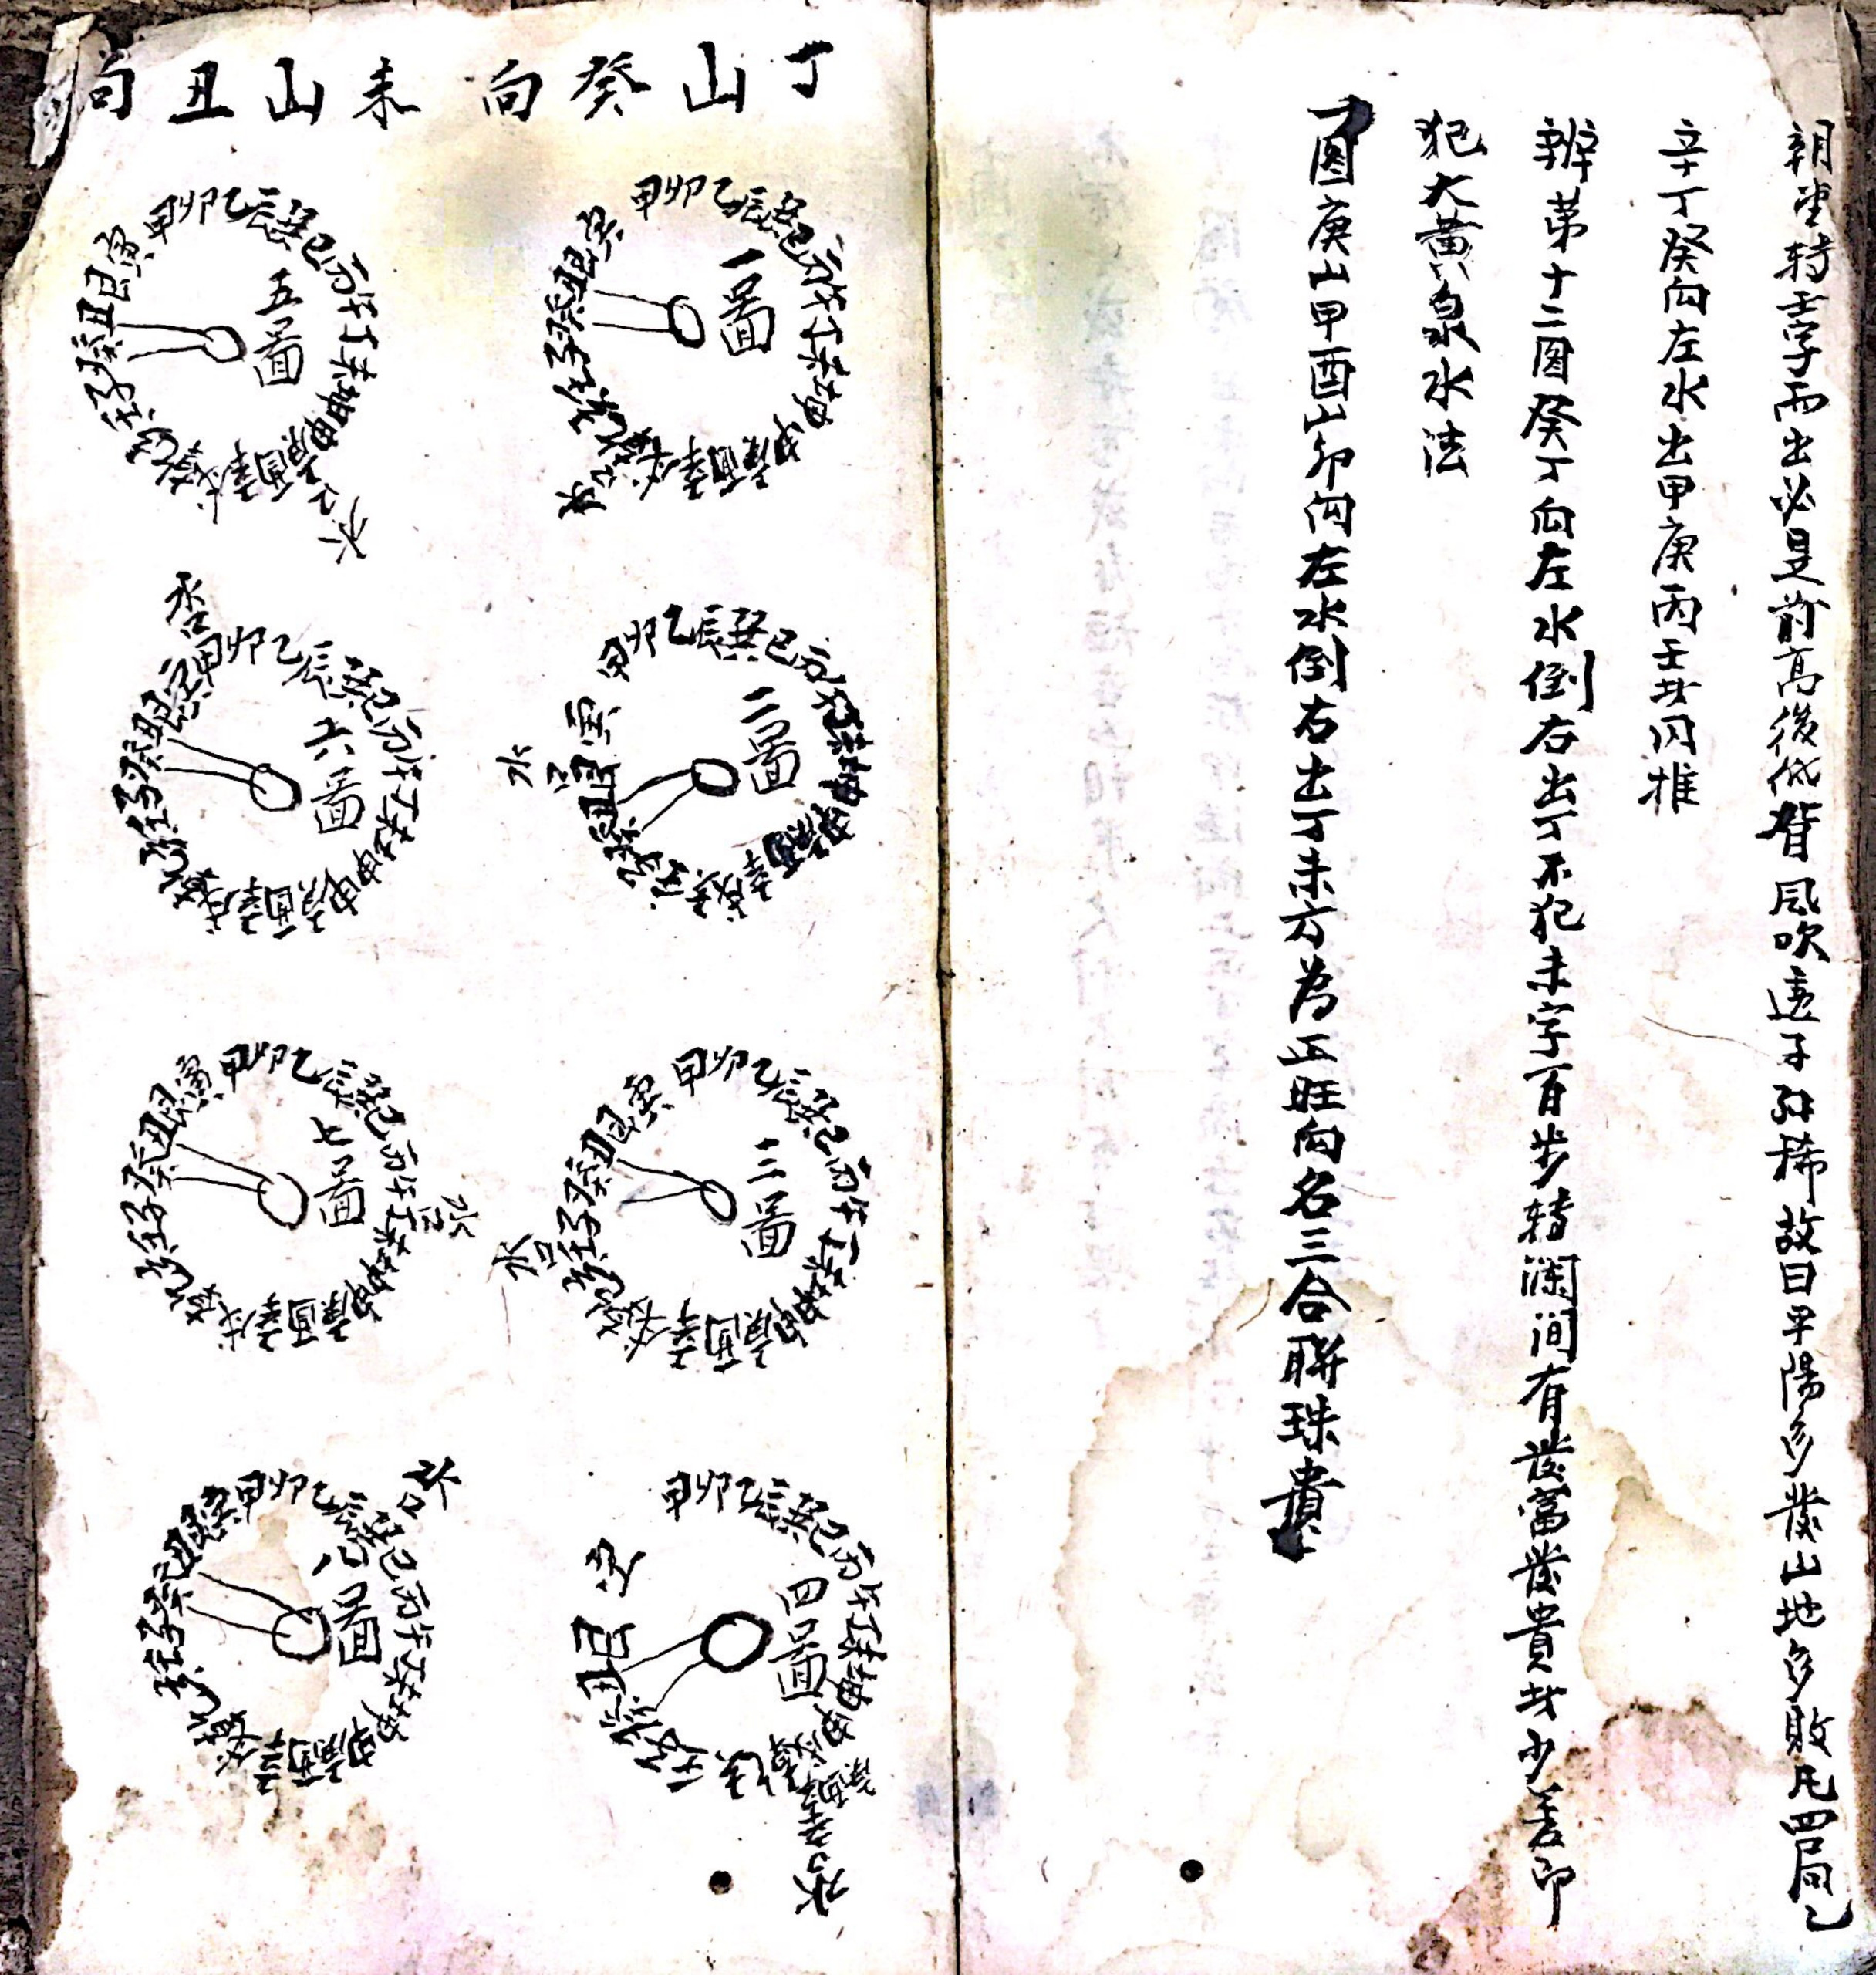 朝堂轉壬字而出必是前高後低背風吹遠子孫稀故曰平陽多發山地多敗凡四局乙
辛丁癸向左水出甲庚丙壬共同推
辨第十二図癸丁向左水倒右出丁不犯未字百步轉瀾间有發富發貴大少差即
犯大黃泉水法
一図庚山甲酉山卯向左水倒右出丁未方為正旺向名三合聯珠貴
丁山癸向未山丑向
一圖
甲卯乙辰巽巳丙午丁未坤申庚酉辛戌乾亥壬子癸丑艮寅
水口
二圖
甲卯乙辰巽巳丙午丁未坤申庚酉辛戌乾亥壬子癸丑艮寅
水口
三圖
甲卯乙辰巽巳丙午丁未坤申庚酉辛戌乾亥壬子癸丑艮寅
水口
四圖
甲卯乙辰巽巳丙午丁未坤申庚酉辛
水
五圖
甲卯乙辰巽巳丙午丁未坤申庚酉辛戌乾亥壬子癸丑艮寅
水口
六圖
甲卯乙辰巽巳丙午丁未坤申庚酉辛戌乾亥壬子癸丑艮寅
水口
七圖
甲卯乙辰巽巳丙午丁未坤申庚酉辛戌乾亥壬子癸丑艮寅
水口
八圖
甲卯乙辰巽巳丙午丁未坤申庚酉辛戌乾亥壬子癸丑艮寅
水口